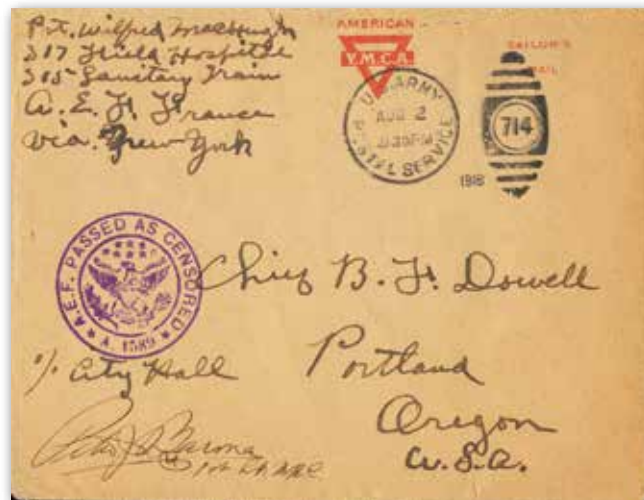 Pvt. Wilfred
317 Field Hospital
315 Sanitary Train
A. E. F. France
via. New York
AMERICAN
Y.M.C.A.
SAILOR'S
MAIL
U.S. ARMY
AUG 2
POSTAL SERVICE
714
1918
A.E.F. PASSED AS CENSORED
A. 1589
Chief B. F. Dowell
% City Hall
Portland
Oregon
U.S.A.
1st Lt.